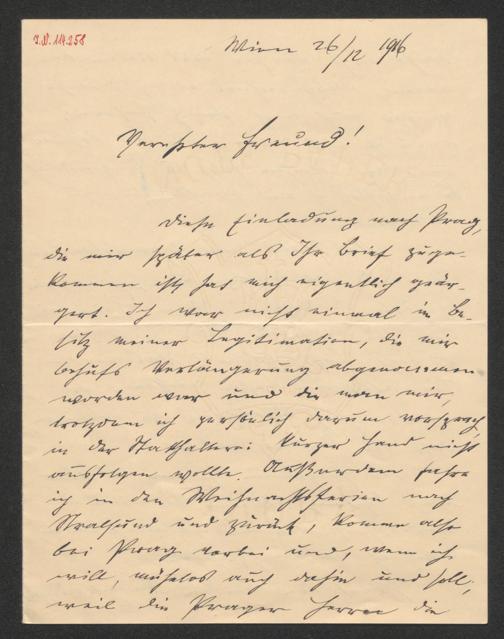 I.N. 114.258
Wien 26/12 1916
Verehrter Freund!
Diese Einladung nach Prag,
die mir später als Ihr Brief zuge-
kommen ist, hat mich eigentlich geär-
gert. Ich war nicht einmal im Be-
sitz meiner Legitimation, die mir
behufs Verlängerung abgenommen
worden war und die man mir,
trotzdem ich persönlich darum vorsprach
in der Statthalterei kurzer Hand nicht
ausfolgen wollte. Außerdem fahre
ich in den Weihnachtsferien nach
Stralsund und zurück, komme also
bei Prag vorbei und, wenn ich
will, mühelos auch dahin und soll,
weil die Prager Herren die